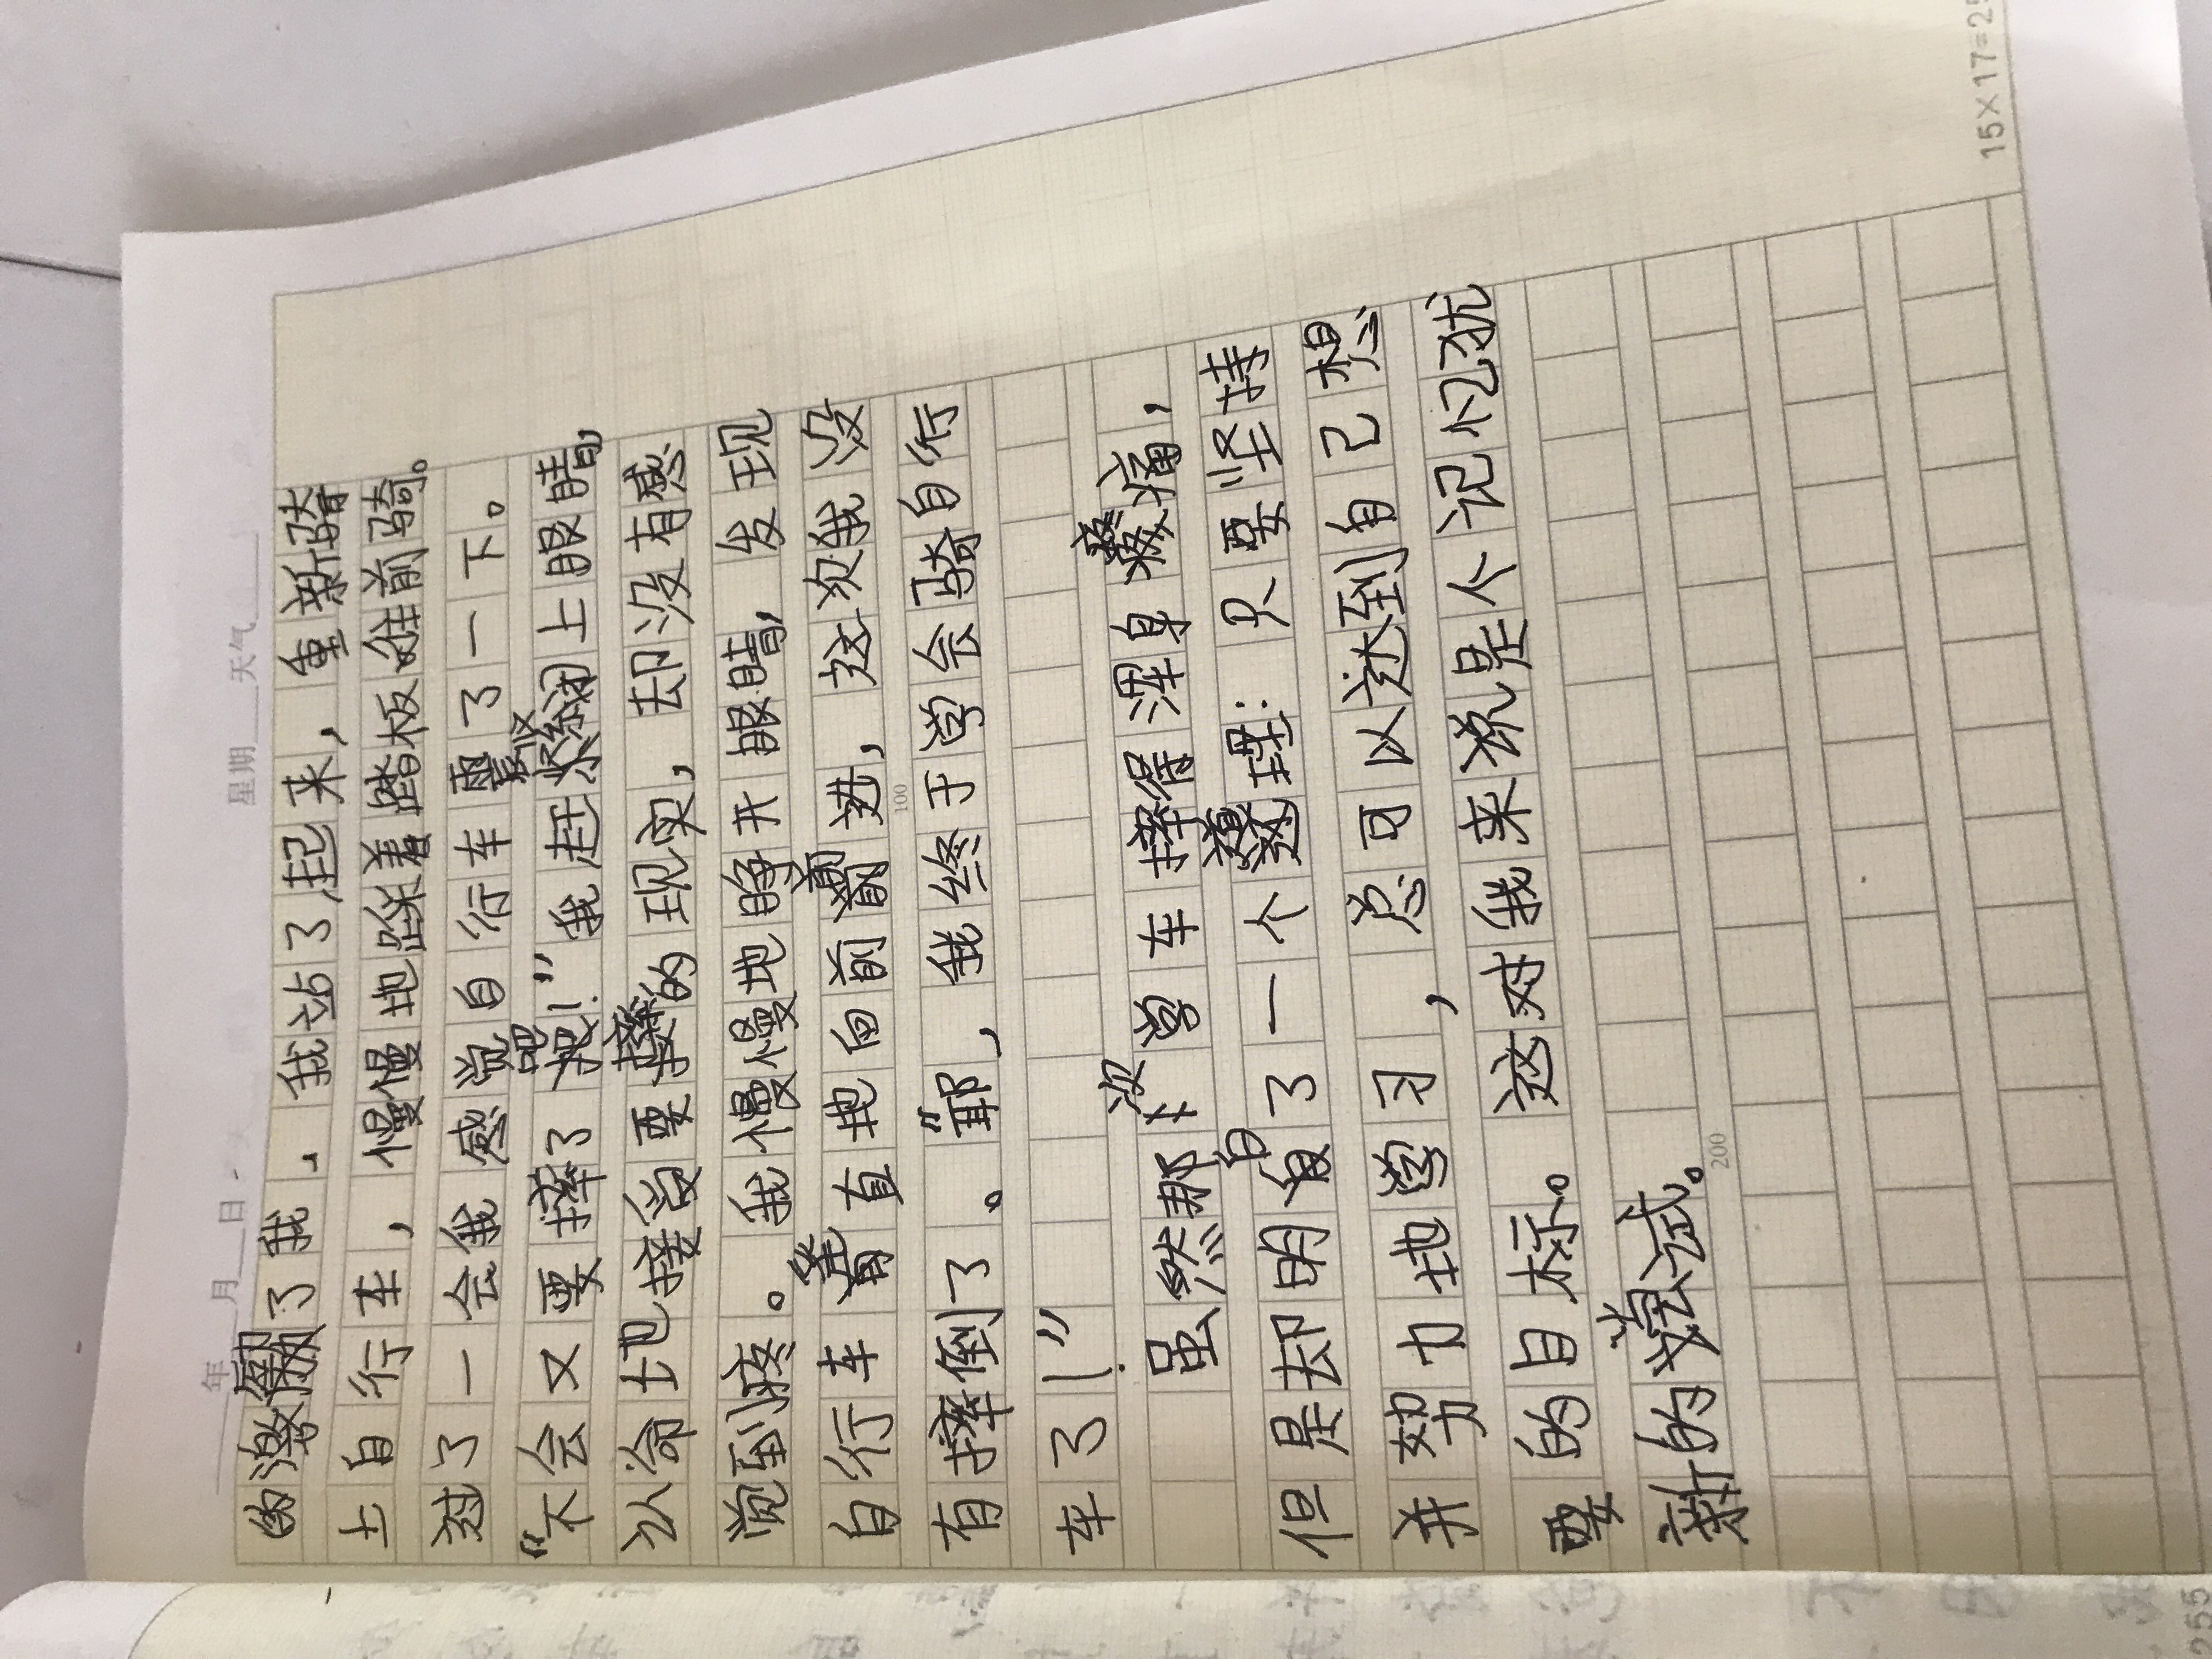 年 月 日 星期 天气
的激励了我，我站了起来，重新骑
上自行车，慢慢地踩着踏板往前骑。
过了一会我感觉自行车震了一下。
“不会又要摔了吧！”我赶紧闭上眼睛，
认命地接受要摔的现实，却没有感
觉到疼。我慢慢地睁开眼睛，发现
自行车直地向前进，这次我没
100
有摔倒了。“耶，我终于学会骑自行
车了！”
虽然那次学车摔得浑身疼痛，
但是却明白了一个道理：只要坚持
并努力地学习，总可以达到自己想
要的目标。这对我来说是个记忆犹
200
新的尝试。
15×17=25
255